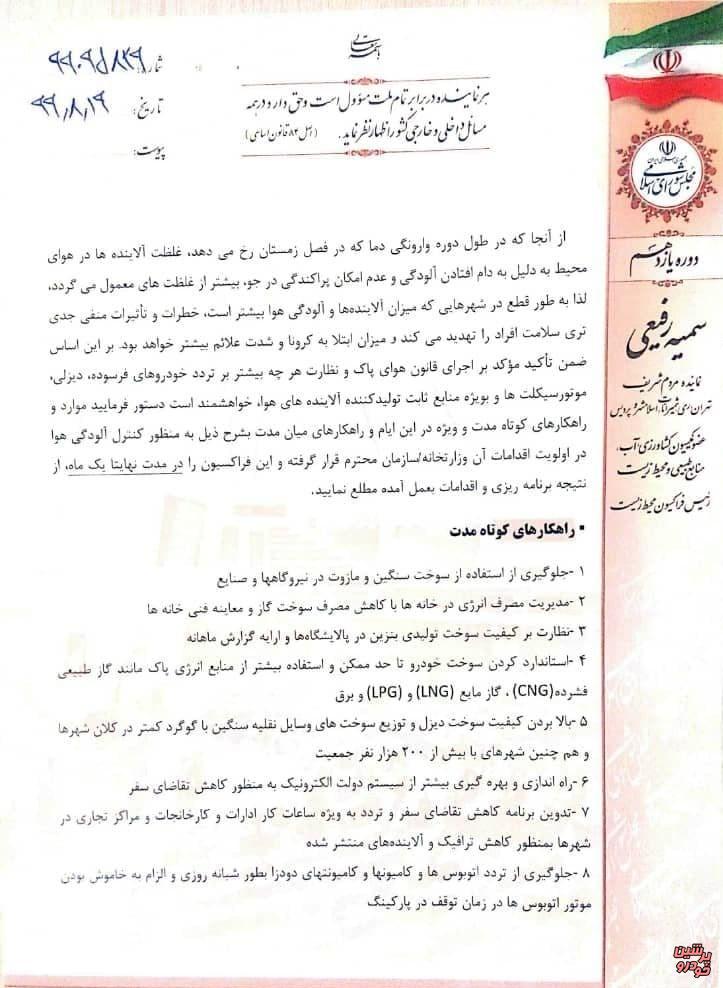 باسمه تعالی
شماره: ۹۹۰۹۵۸۳۹
تاریخ: ۹۹,۸,۱۹
پیوست:
هر نماینده در برابر تمام ملت مسؤول است و حق دارد در همه
مسائل داخلی و خارجی کشور اظهار نظر نماید. (اصل ۸۴ قانون اساسی)
جمهوری اسلامی ایران
مجلس شورای اسلامی
دوره یازدهم
سمیه رفیعی
نماینده مردم شریف
تهران، ری، شمیرانات، اسلامشهر و پردیس
عضو کمیسیون کشاورزی، آب،
منابع طبیعی و محیط زیست
رئیس فراکسیون محیط زیست
از آنجا که در طول دوره وارونگی دما که در فصل زمستان رخ می دهد، غلظت آلاینده ها در هوای
محیط به دلیل به دام افتادن آلودگی و عدم امکان پراکندگی در جو، بیشتر از غلظت های معمول می گردد،
لذا به طور قطع در شهرهایی که میزان آلاینده‌ها و آلودگی هوا بیشتر است، خطرات و تأثیرات منفی جدی
تری سلامت افراد را تهدید می کند و میزان ابتلا به کرونا و شدت علائم بیشتر خواهد بود. بر این اساس
ضمن تأکید مؤکد بر اجرای قانون هوای پاک و نظارت هر چه بیشتر بر تردد خودروهای فرسوده، دیزلی،
موتورسیکلت ها و بویژه منابع ثابت تولیدکننده آلاینده های هوا، خواهشمند است دستور فرمایید موارد و
راهکارهای کوتاه مدت و ویژه در این ایام و راهکارهای میان مدت بشرح ذیل به منظور کنترل آلودگی هوا
در اولویت اقدامات آن وزارتخانه/سازمان محترم قرار گرفته و این فراکسیون را در مدت نهایتا یک ماه، از
نتیجه برنامه ریزی و اقدامات بعمل آمده مطلع نمایید.
▪ راهکارهای کوتاه مدت
۱ -جلوگیری از استفاده از سوخت سنگین و مازوت در نیروگاهها و صنایع
۲ -مدیریت مصرف انرژی در خانه ها با کاهش مصرف سوخت گاز و معاینه فنی خانه ها
۳ -نظارت بر کیفیت سوخت تولیدی بنزین در پالایشگاه‌ها و ارایه گزارش ماهانه
۴ -استاندارد کردن سوخت خودرو تا حد ممکن و استفاده بیشتر از منابع انرژی پاک مانند گاز طبیعی
فشرده(CNG) ، گاز مایع (LNG) و (LPG) و برق
۵ -بالا بردن کیفیت سوخت دیزل و توزیع سوخت های وسایل نقلیه سنگین با گوگرد کمتر در کلان شهرها
و هم چنین شهرهای با بیش از ۲۰۰ هزار نفر جمعیت
۶ -راه اندازی و بهره گیری بیشتر از سیستم دولت الکترونیک به منظور کاهش تقاضای سفر
۷ -تدوین برنامه کاهش تقاضای سفر و تردد به ویژه ساعات کار ادارات و کارخانجات و مراکز تجاری در
شهرها بمنظور کاهش ترافیک و آلاینده‌های منتشر شده
۸ -جلوگیری از تردد اتوبوس ها و کامیونها و کامیونتهای دودزا بطور شبانه روزی و الزام به خاموش بودن
موتور اتوبوس ها در زمان توقف در پارکینگ
پرشین خودرو